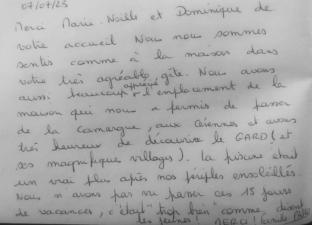 07/07/23
Merci Marie-Noëlle et Dominique de
votre accueil Nous nous sommes
sentis comme à la maison dans
votre très agréable gîte. Nous avons
aussi beaucoup apprécié l'emplacement de la
maison qui nous a permis de passer
de la Camargue, aux Cévennes et avons
été heureux de découvrir le GARD (et
ses magnifique villages). la piscine était
un vrai plus après nos périples ensoleillés.
Nous n'avons pas vu passer ces 15 jours
de vacances, c'était "trop bien" comme disent
les jeunes! MERCI!